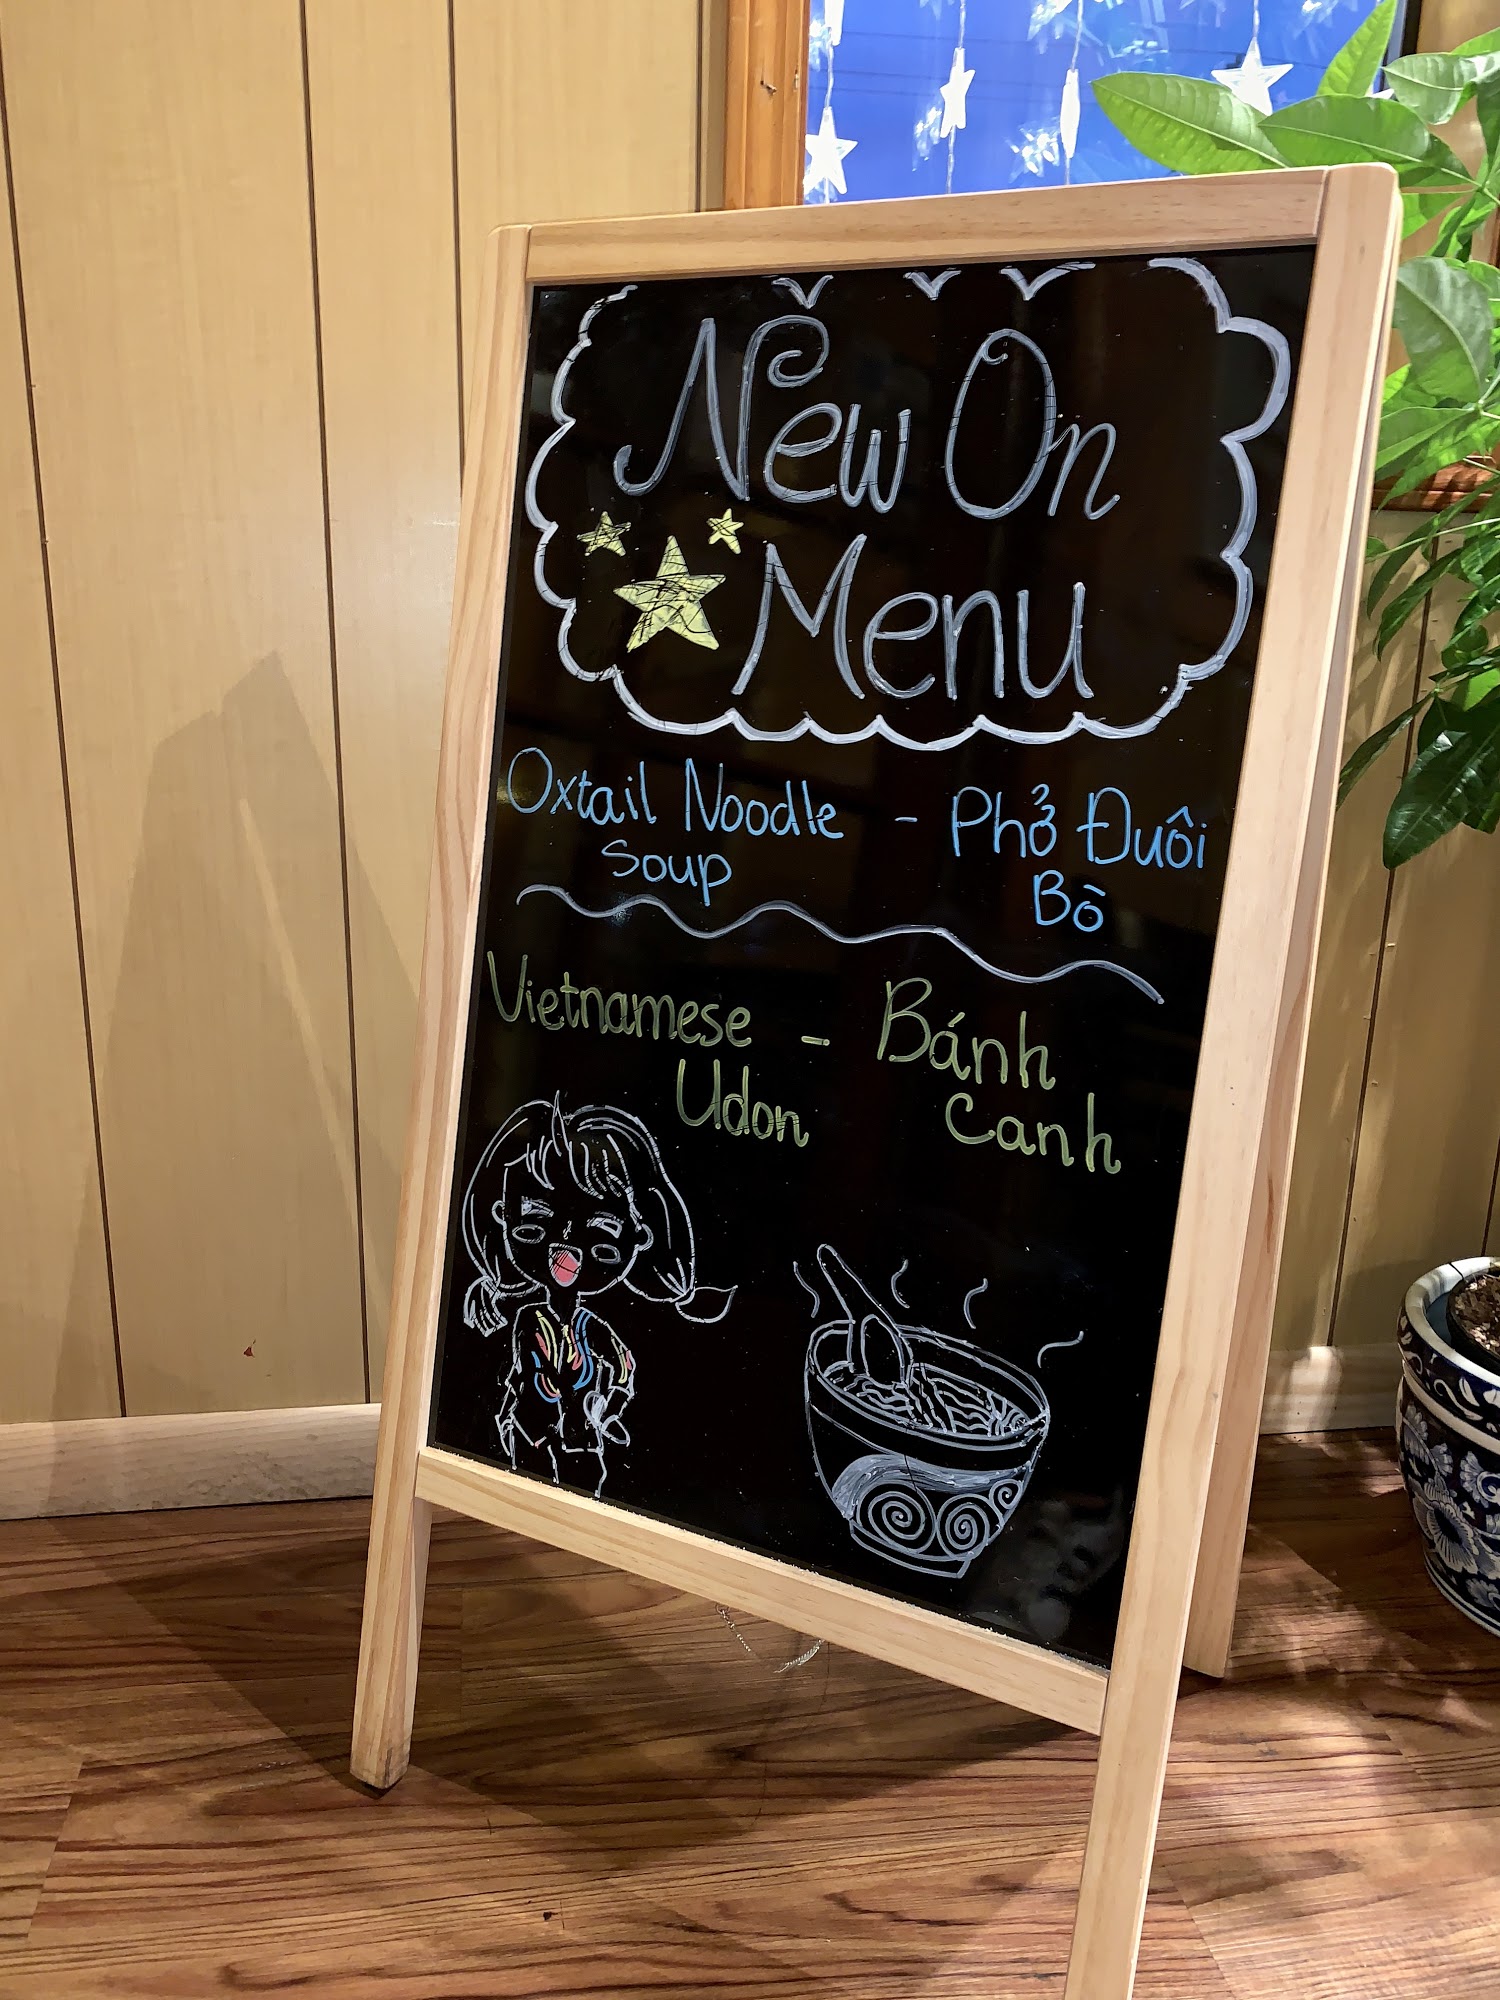 New On
Menu
Oxtail Noodle - Phở Đuôi
Soup Bò
Vietnamese - Bánh
Udon Canh